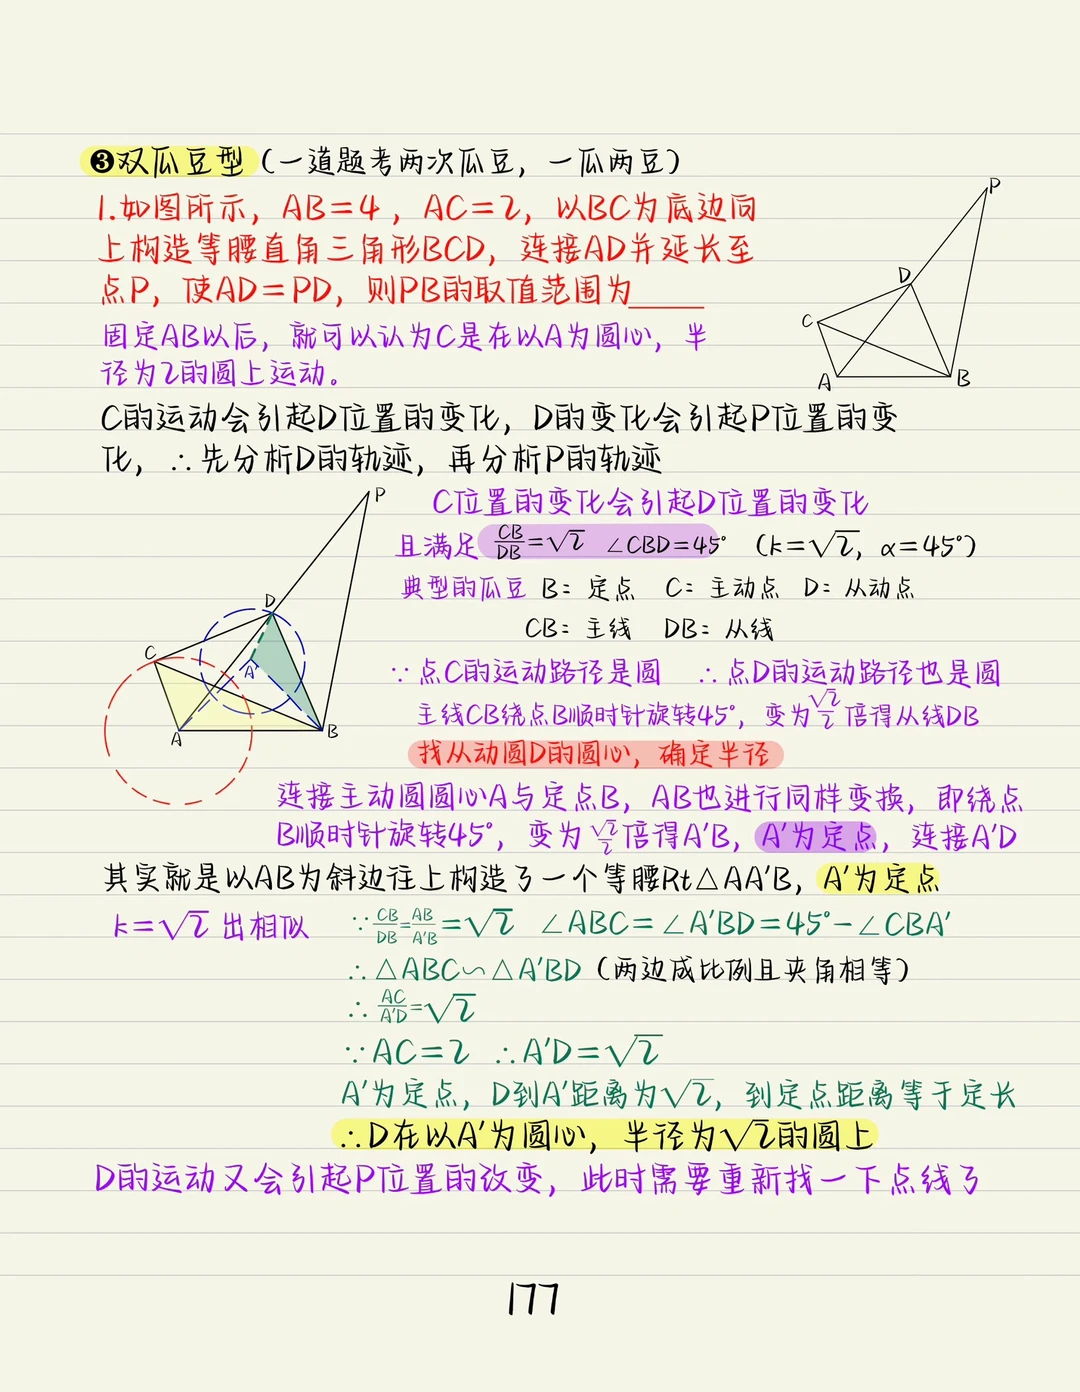 ❸双瓜豆型（一道题考两次瓜豆，一瓜两豆）
1.如图所示，AB=4，AC=2，以BC为底边向
上构造等腰直角三角形BCD，连接AD并延长至
点P，使AD=PD，则PB的取值范围为______
P
D
C
A
B
固定AB以后，就可以认为C是在以A为圆心，半
径为2的圆上运动。
C的运动会引起D位置的变化，D的变化会引起P位置的变
化，∴先分析D的轨迹，再分析P的轨迹
P
D
C
A'
A
B
C位置的变化会引起D位置的变化
且满足 CB/DB=√2 ∠CBD=45°（k=√2，α=45°）
典型的瓜豆 B：定点 C：主动点 D：从动点
CB：主线 DB：从线
∵点C的运动路径是圆 ∴点D的运动路径也是圆
主线CB绕点B顺时针旋转45°，变为√2/2倍得从线DB
找从动圆D的圆心，确定半径
连接主动圆圆心A与定点B，AB也进行同样变换，即绕点
B顺时针旋转45°，变为√2/2倍得A'B，A'为定点，连接A'D
其实就是以AB为斜边往上构造了一个等腰Rt△AA'B，A'为定点
k=√2出相似 ∵CB/DB=AB/A'B=√2 ∠ABC=∠A'BD=45°-∠CBA'
∴△ABC∽△A'BD（两边成比例且夹角相等）
∴AC/A'D=√2
∵AC=2 ∴A'D=√2
A'为定点，D到A'距离为√2，到定点距离等于定长
∴D在以A'为圆心，半径为√2的圆上
D的运动又会引起P位置的改变，此时需要重新找一下点线了
177